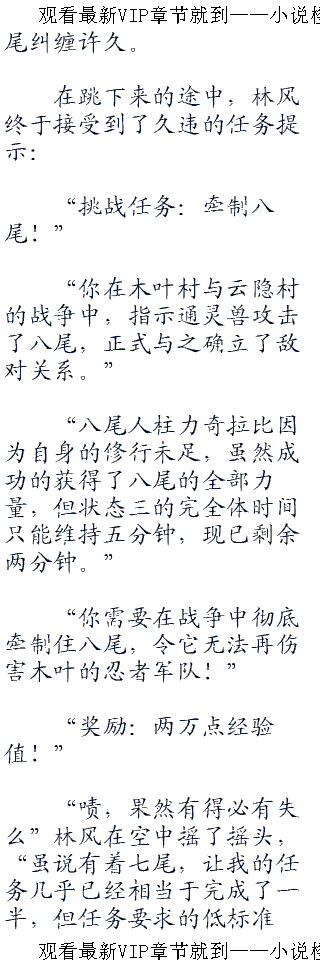 观看最新VIP章节就到——小说检
尾纠缠许久。
在跳下来的途中，林风
终于接受到了久违的任务提
示：
“挑战任务：牵制八
尾！”
“你在木叶村与云隐村
的战争中，指示通灵兽攻击
了八尾，正式与之确立了敌
对关系。”
“八尾人柱力奇拉比因
为自身的修行未足，虽然成
功的获得了八尾的全部力
量，但状态三的完全体时间
只能维持五分钟，现已剩余
两分钟。”
“你需要在战争中彻底
牵制住八尾，令它无法再伤
害木叶的忍者军队！”
“奖励：两万点经验
值！”
“啧，果然有得必有失
么”林风在空中摇了摇头，
“虽说有着七尾，让我的任
务几乎已经相当于完成了一
半，但任务要求的低标准
观看最新VIP章节就到——小说检